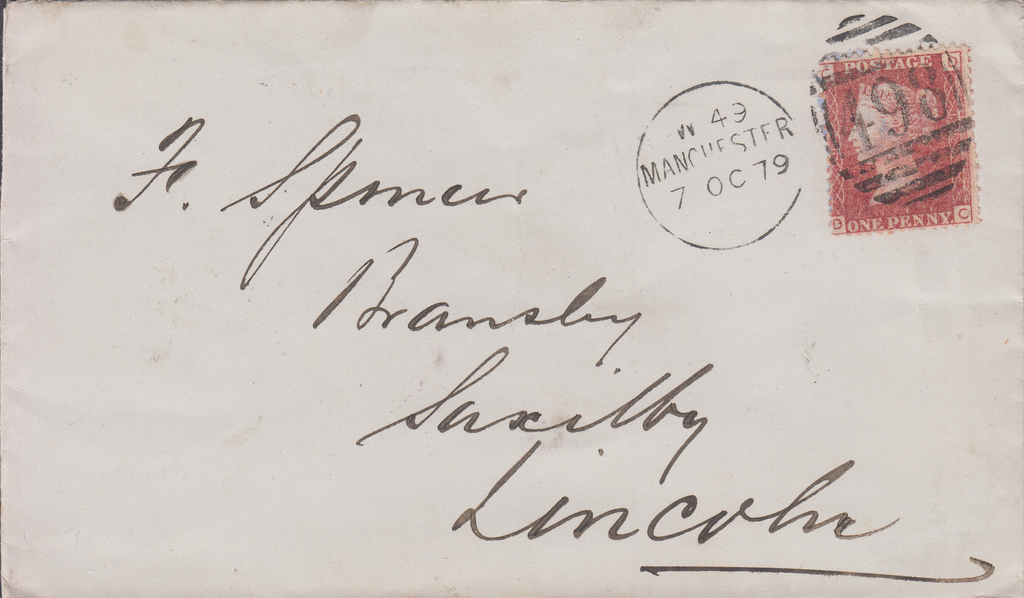 POSTAGE
498
W 49
MANCHESTER
7 OC 79
D C
ONE PENNY
F. Spencer
Bransby
Saxilby
Lincoln